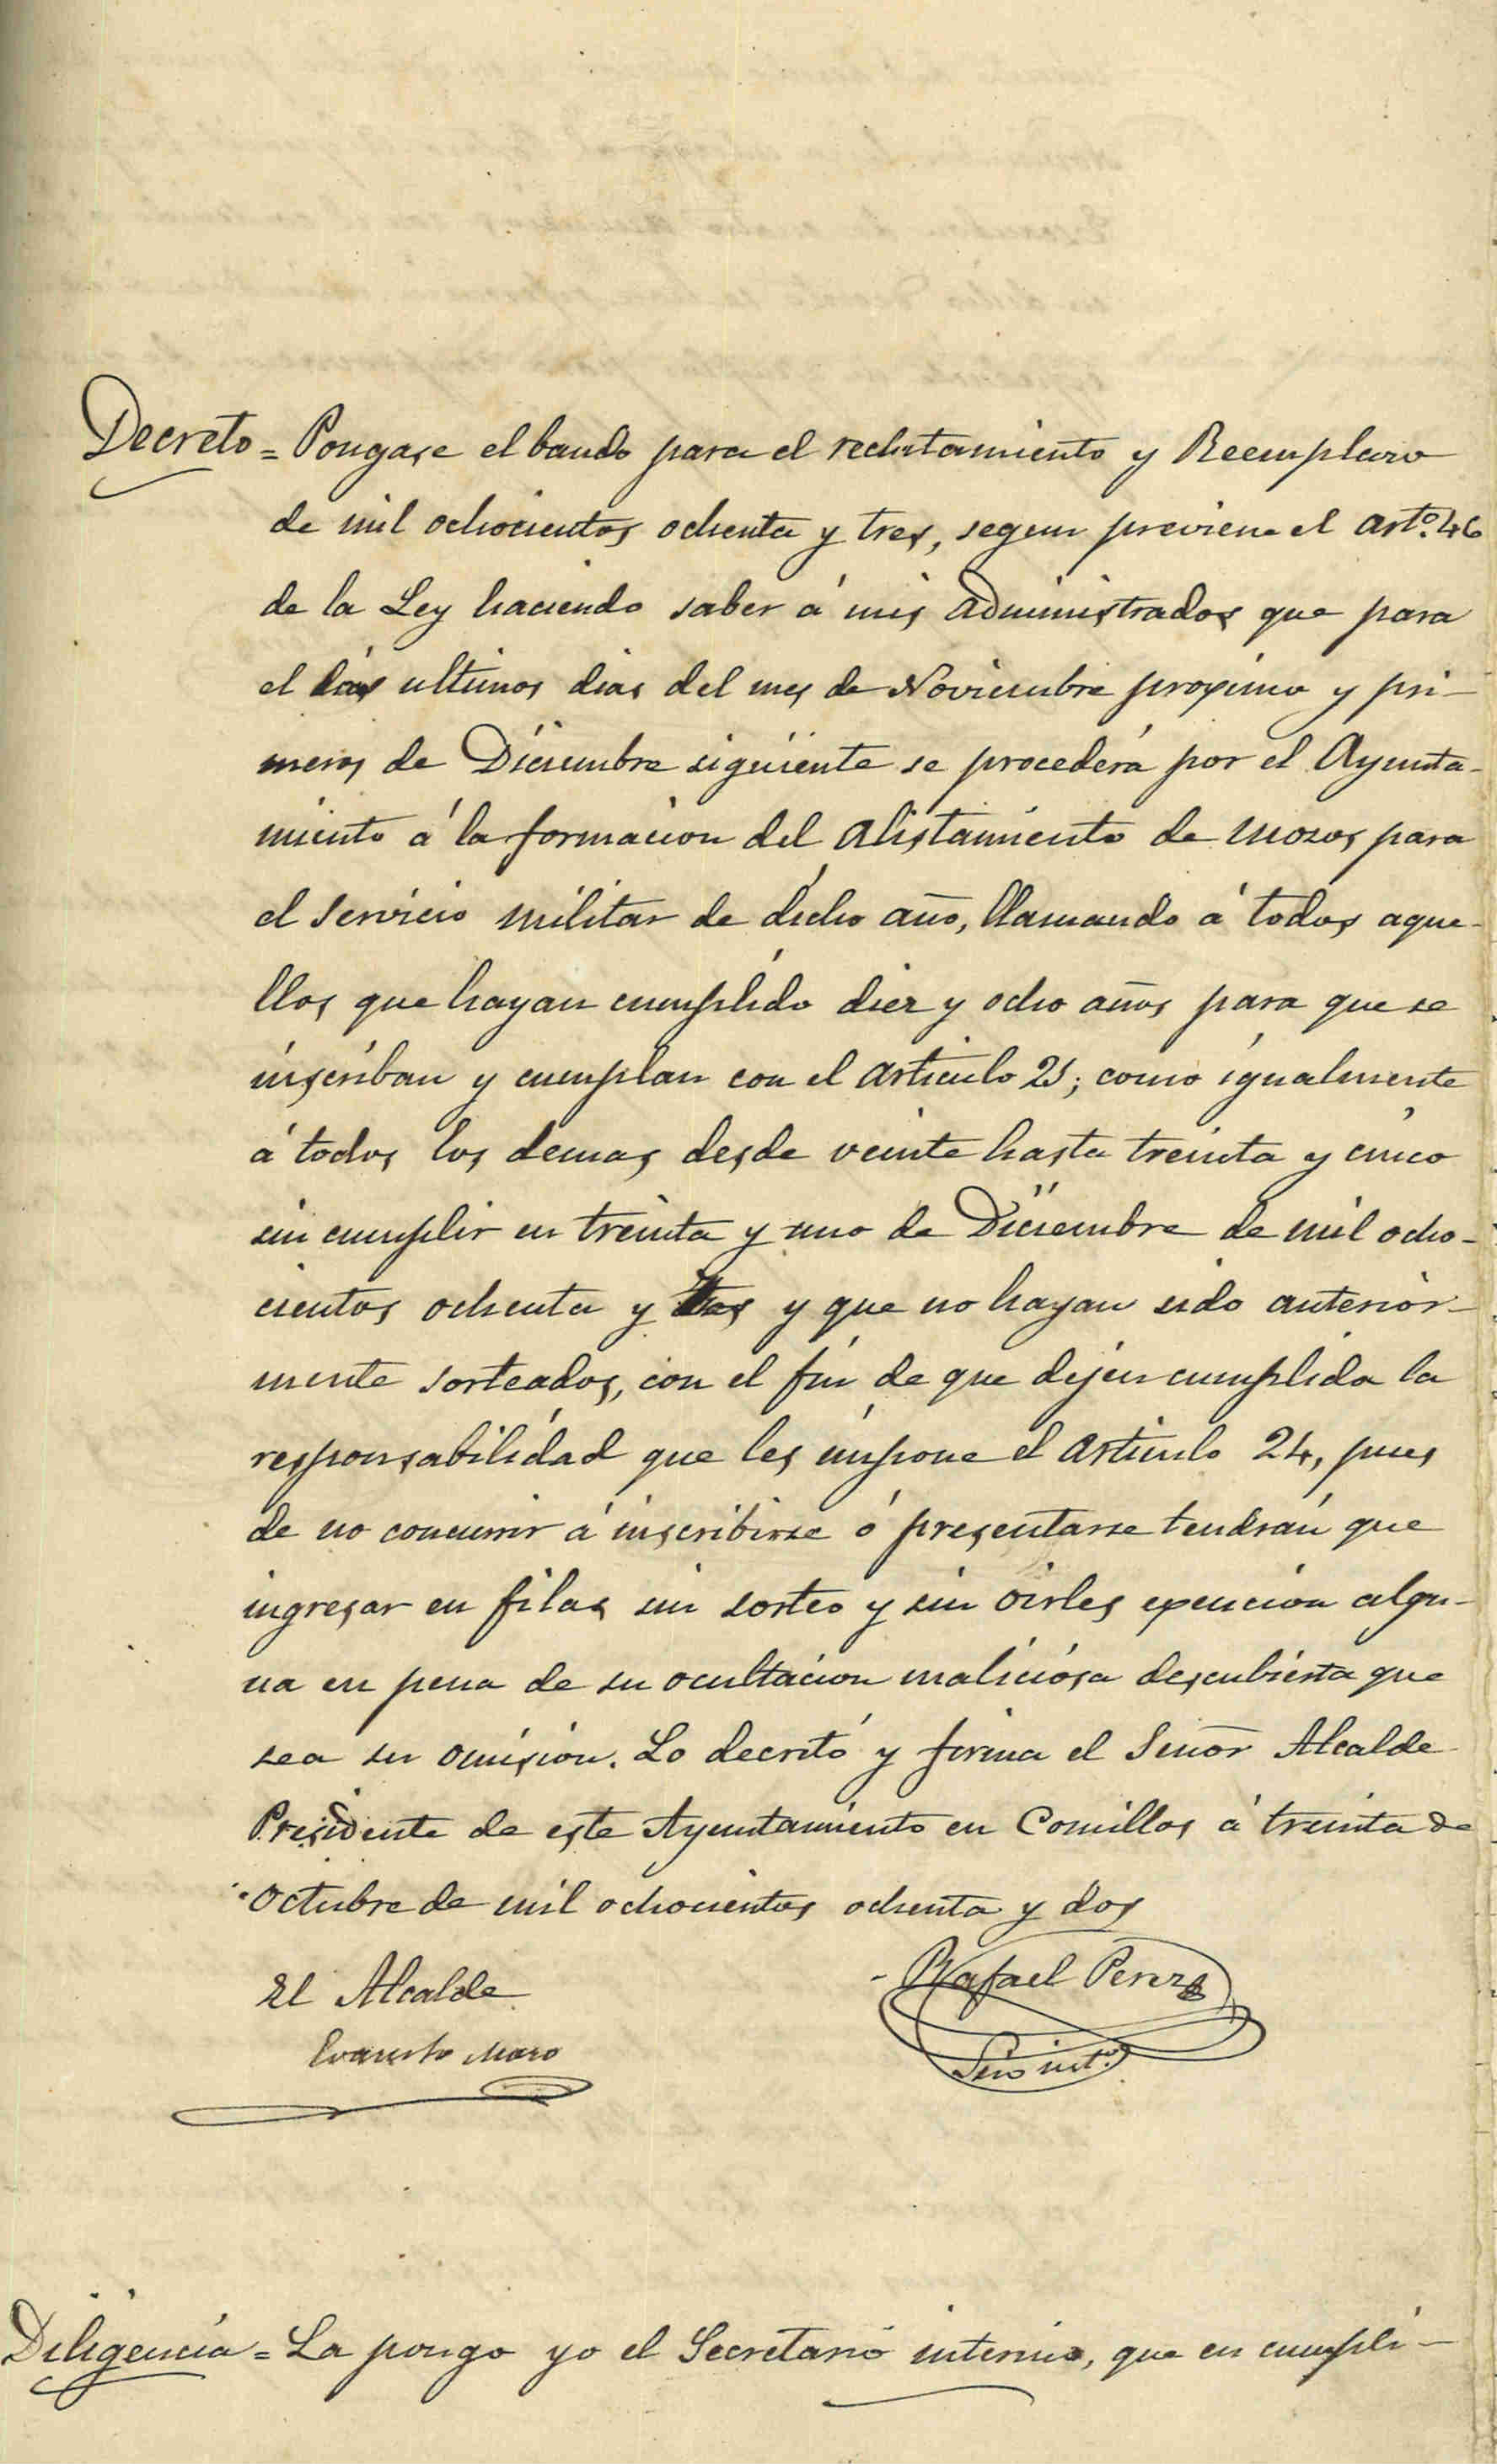 Decreto = Pongase el bando para el reclutamiento y Reemplazo
de mil ochocientos ochenta y tres, segun previene el artº. 46
de la Ley haciendo saber á mis administrados que para
el ultimos dias del mes de Noviembre proximo y pri-
meros de Diciembre siguiente se procederá por el Ayunta-
miento á la formacion del alistamiento de mozos para
el servicio militar de dicho año, llamando á todos aque-
llos que hayan cumplido diez y ocho años para que se
inscriban y cumplan con el articulo 23; como igualmente
á todos los demas desde veinte hasta treinta y cinco
sin cumplir en treinta y uno de Diciembre de mil ocho-
cientos ochenta y tres y que no hayan sido anterior-
mente sorteados, con el fin de que dejen cumplida la
responsabilidad que les impone el articulo 24, pues
de no concurrir á inscribirse ó presentarse tendrán que
ingresar en filas sin sorteo y sin oirles exencion algu-
na en pena de su ocultacion maliciosa descubierta que
sea su omision. Lo decretó y firma el Señor Alcalde
Presidente de este Ayuntamiento en Comillas á treinta de
Octubre de mil ochocientos ochenta y dos
El Alcalde
Rafael Perez
Evaristo
Srio intº.
Diligencia = La pongo yo el Secretario interino, que en cumpli-